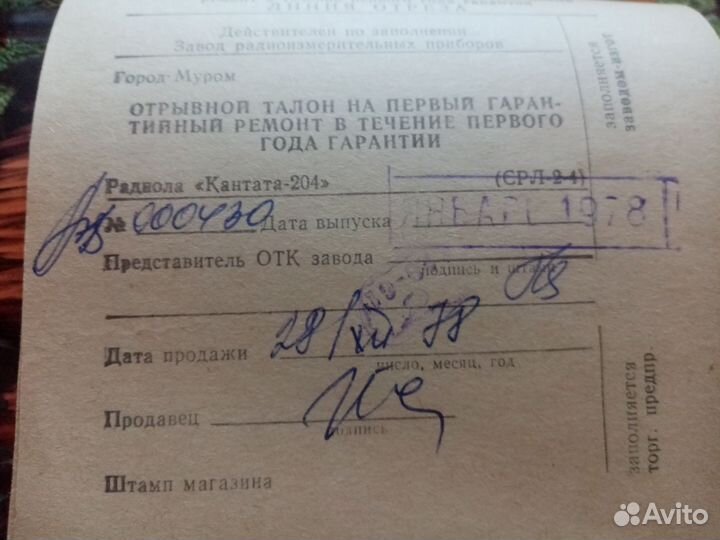 ЛИНИЯ ОТРЕЗА
Действителен по заполнении
Завод радиоизмерительных приборов
Город Муром
ОТРЫВНОЙ ТАЛОН НА ПЕРВЫЙ ГАРАН-
ТИЙНЫЙ РЕМОНТ В ТЕЧЕНИЕ ПЕРВОГО
ГОДА ГАРАНТИИ
Радиола «Кантата-204» (СРЛ-2-4)
№ 000430 Дата выпуска ЯНВАРЬ 1978
Представитель ОТК завода
подпись и штамп
Дата продажи 28/XII 78
число, месяц, год
Продавец
подпись
Штамп магазина
заполняется
заводом-изгот
заполняется
торг. предпр.
Avito